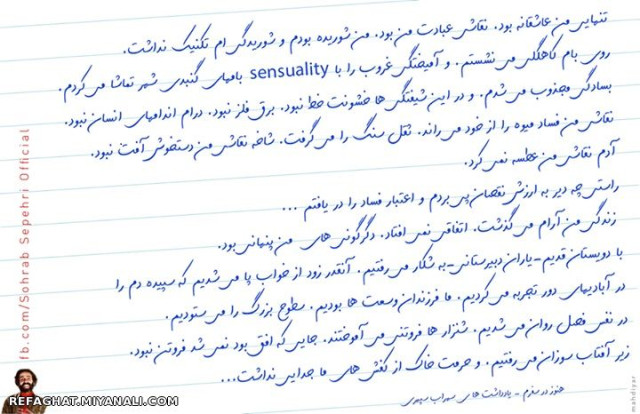 تنهایی من عاشقانه بود. نقاشی عبادت من بود. من شوریده بودم و شوریدگی ام تکنیک نداشت.
روی بام کاهگلی می نشستم. و آمیختگی غروب را با sensuality بامهای گنبدی شهر تماشا می کردم.
بسادگی مجذوب می شدم. و در این شیفتگی ها خشونت خط نبود. برق فلز نبود. درام اندامهای انسان نبود.
نقاشی من فساد میوه را از خود می راند. ثقل سنگ را می گرفت. شاخه نقاشی من دستخوش آفت نبود.
آدم نقاشی من عطسه نمی کرد.
راستی چه دیر به ارزش نقصان پی بردم و اعتبار فساد را دریافتم ...
زندگی من آرام می گذشت. اتفاقی نمی افتاد. دگرگونی های من پنهانی بود.
با دوستان قدیم - یاران دبیرستانی - به شکار می رفتیم. آنقدر زود از خواب پا می شدیم که سپیده دم را
در آبادیهای دور تجربه می کردیم. ما فرزندان وسعت ها بودیم. سطوح بزرگ را می ستودیم.
در نفس فصل روان می شدیم. شنزار ها فروتنی می آموختند. جایی که افق بود نمی شد فروتن نبود.
زیر آفتاب سوزان می رفتیم. و حرمت خاک از کفش های ما جدایی نداشت...
هنوز در سفرم - یادداشت های سهراب سپهری
fb.com/Sohrab Sepehri Official
REFAGHAT.MIYANALI.COM
mahdiyar